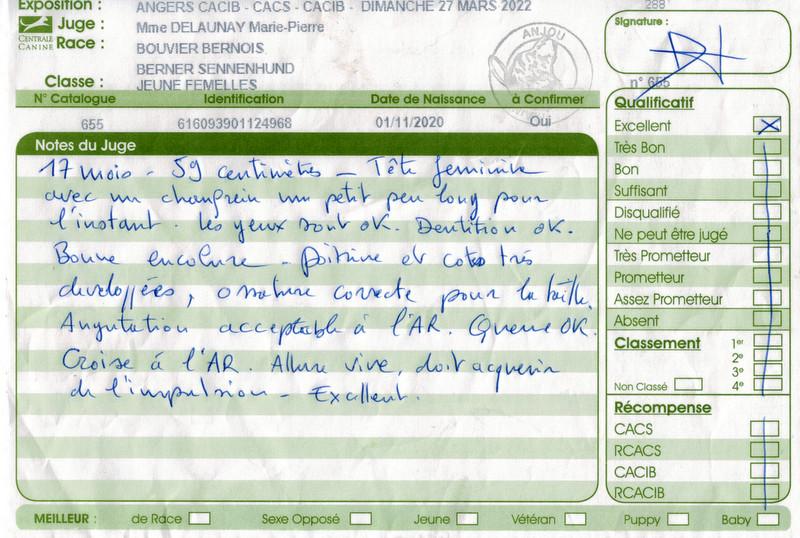 Exposition : ANGERS CACIB - CACS - CACIB - DIMANCHE 27 MARS 2022
288
CENTRALE CANINE
Juge : Mme DELAUNAY Marie-Pierre
Race : BOUVIER BERNOIS
BERNER SENNENHUND
Classe : JEUNE FEMELLES
ANJOU
Signature :
n° 655
N° Catalogue Identification Date de Naissance à Confirmer
655 616093901124968 01/11/2020 Oui
Notes du Juge
17 mois - 59 centimètres - Tête feminine
avec un chanfrein un petit peu long pour
l'instant. les yeux sont OK. Dentition OK.
Bonne encolure - Poitrine et cotes très
developpées, ossature correcte pour la taille.
Angulation acceptable à l'AR. Queue OK.
Croise à l'AR. Allure vive, doit acquerir
de l'impulsion - Excellent.
Qualificatif
Excellent
Très Bon
Bon
Suffisant
Disqualifié
Ne peut être jugé
Très Prometteur
Prometteur
Assez Prometteur
Absent
Classement 1er
2e
3e
Non Classé 4e
Récompense
CACS
RCACS
CACIB
RCACIB
MEILLEUR : de Race Sexe Opposé Jeune Vétéran Puppy Baby